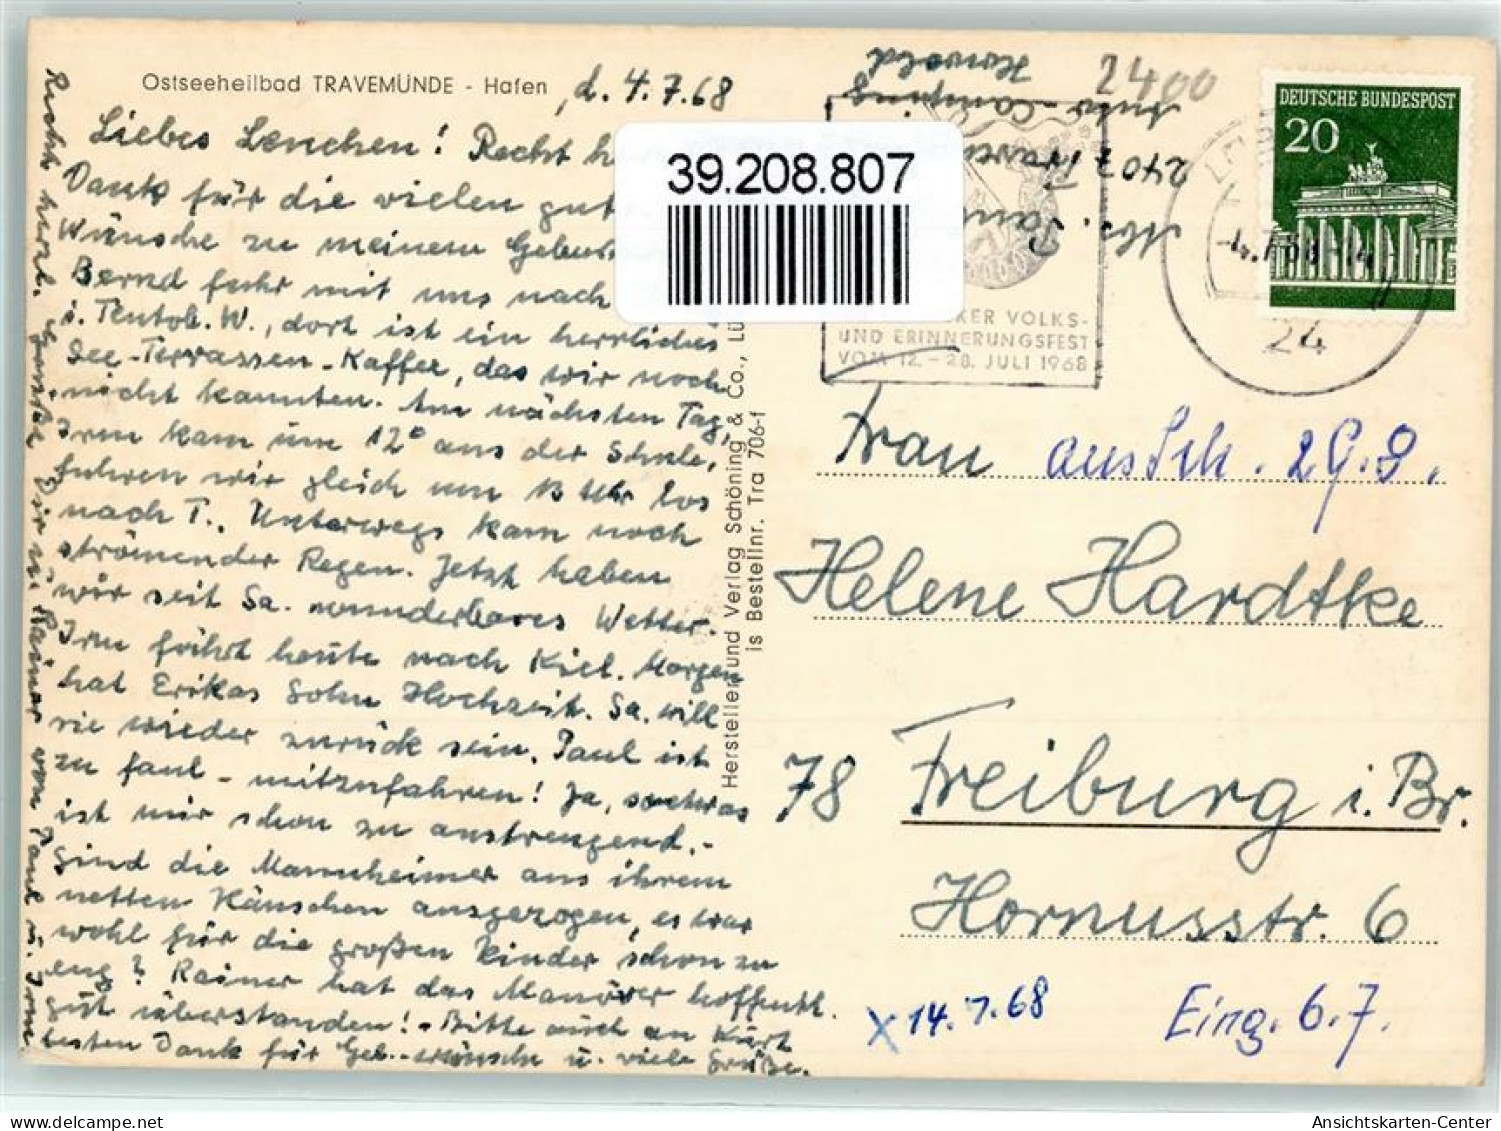 Ostseeheilbad TRAVEMÜNDE - Hafen
, d. 4.7.68
Liebes Lenchen! Recht h
Dank für die vielen gut
Wünsche zu meinem Gebur
Bernd fuhr mit uns nach
i. Teutob. W., dort ist ein herrliches
See-Terrassen-Kaffee, das wir noch
nicht kannten. Am nächsten Tag,
Irm kam um 12° aus der Schule,
fuhren wir gleich um 13 Uhr los
nach T., Unterwegs kam noch
strömender Regen. Jetzt haben
wir seit Sa. wunderbares Wetter.
Irm fährt heute nach Kiel. Morgen
hat Erikas Sohn Hochzeit. Sa. will
sie wieder zurück sein. Paul ist
zu faul - mitzufahren! Ja, so etwas
ist mir schon zu anstrengend.-
Sind die Mannheimer aus ihrem
netten Häuschen ausgezogen, es war
wohl für die großen Kinder schon zu
eng? Rainer hat das Manöver hoffentl.
gut überstanden! - Bitte auch an Kurt
besten Dank für Geb.-wünsche u. viele Grüße.
Recht herzl. Grüße Dir u. Rainer von Paul u. Irm
Hersteller und Verlag Schöning & Co., LÜ
is Bestellnr. Tra 706-f
39.208.807
2400
Abs.
2407 Trave
Auto-Camping
KER VOLKS-
UND ERINNERUNGSFEST
VOM 12.-28. JULI 1968
DEUTSCHE BUNDESPOST
20
24
Frau
Helene Hardtke
78 Freiburg i. Br.
Hornusstr. 6
x 14.7.68
Eing. 6.7.
Ansichtskarten-Center